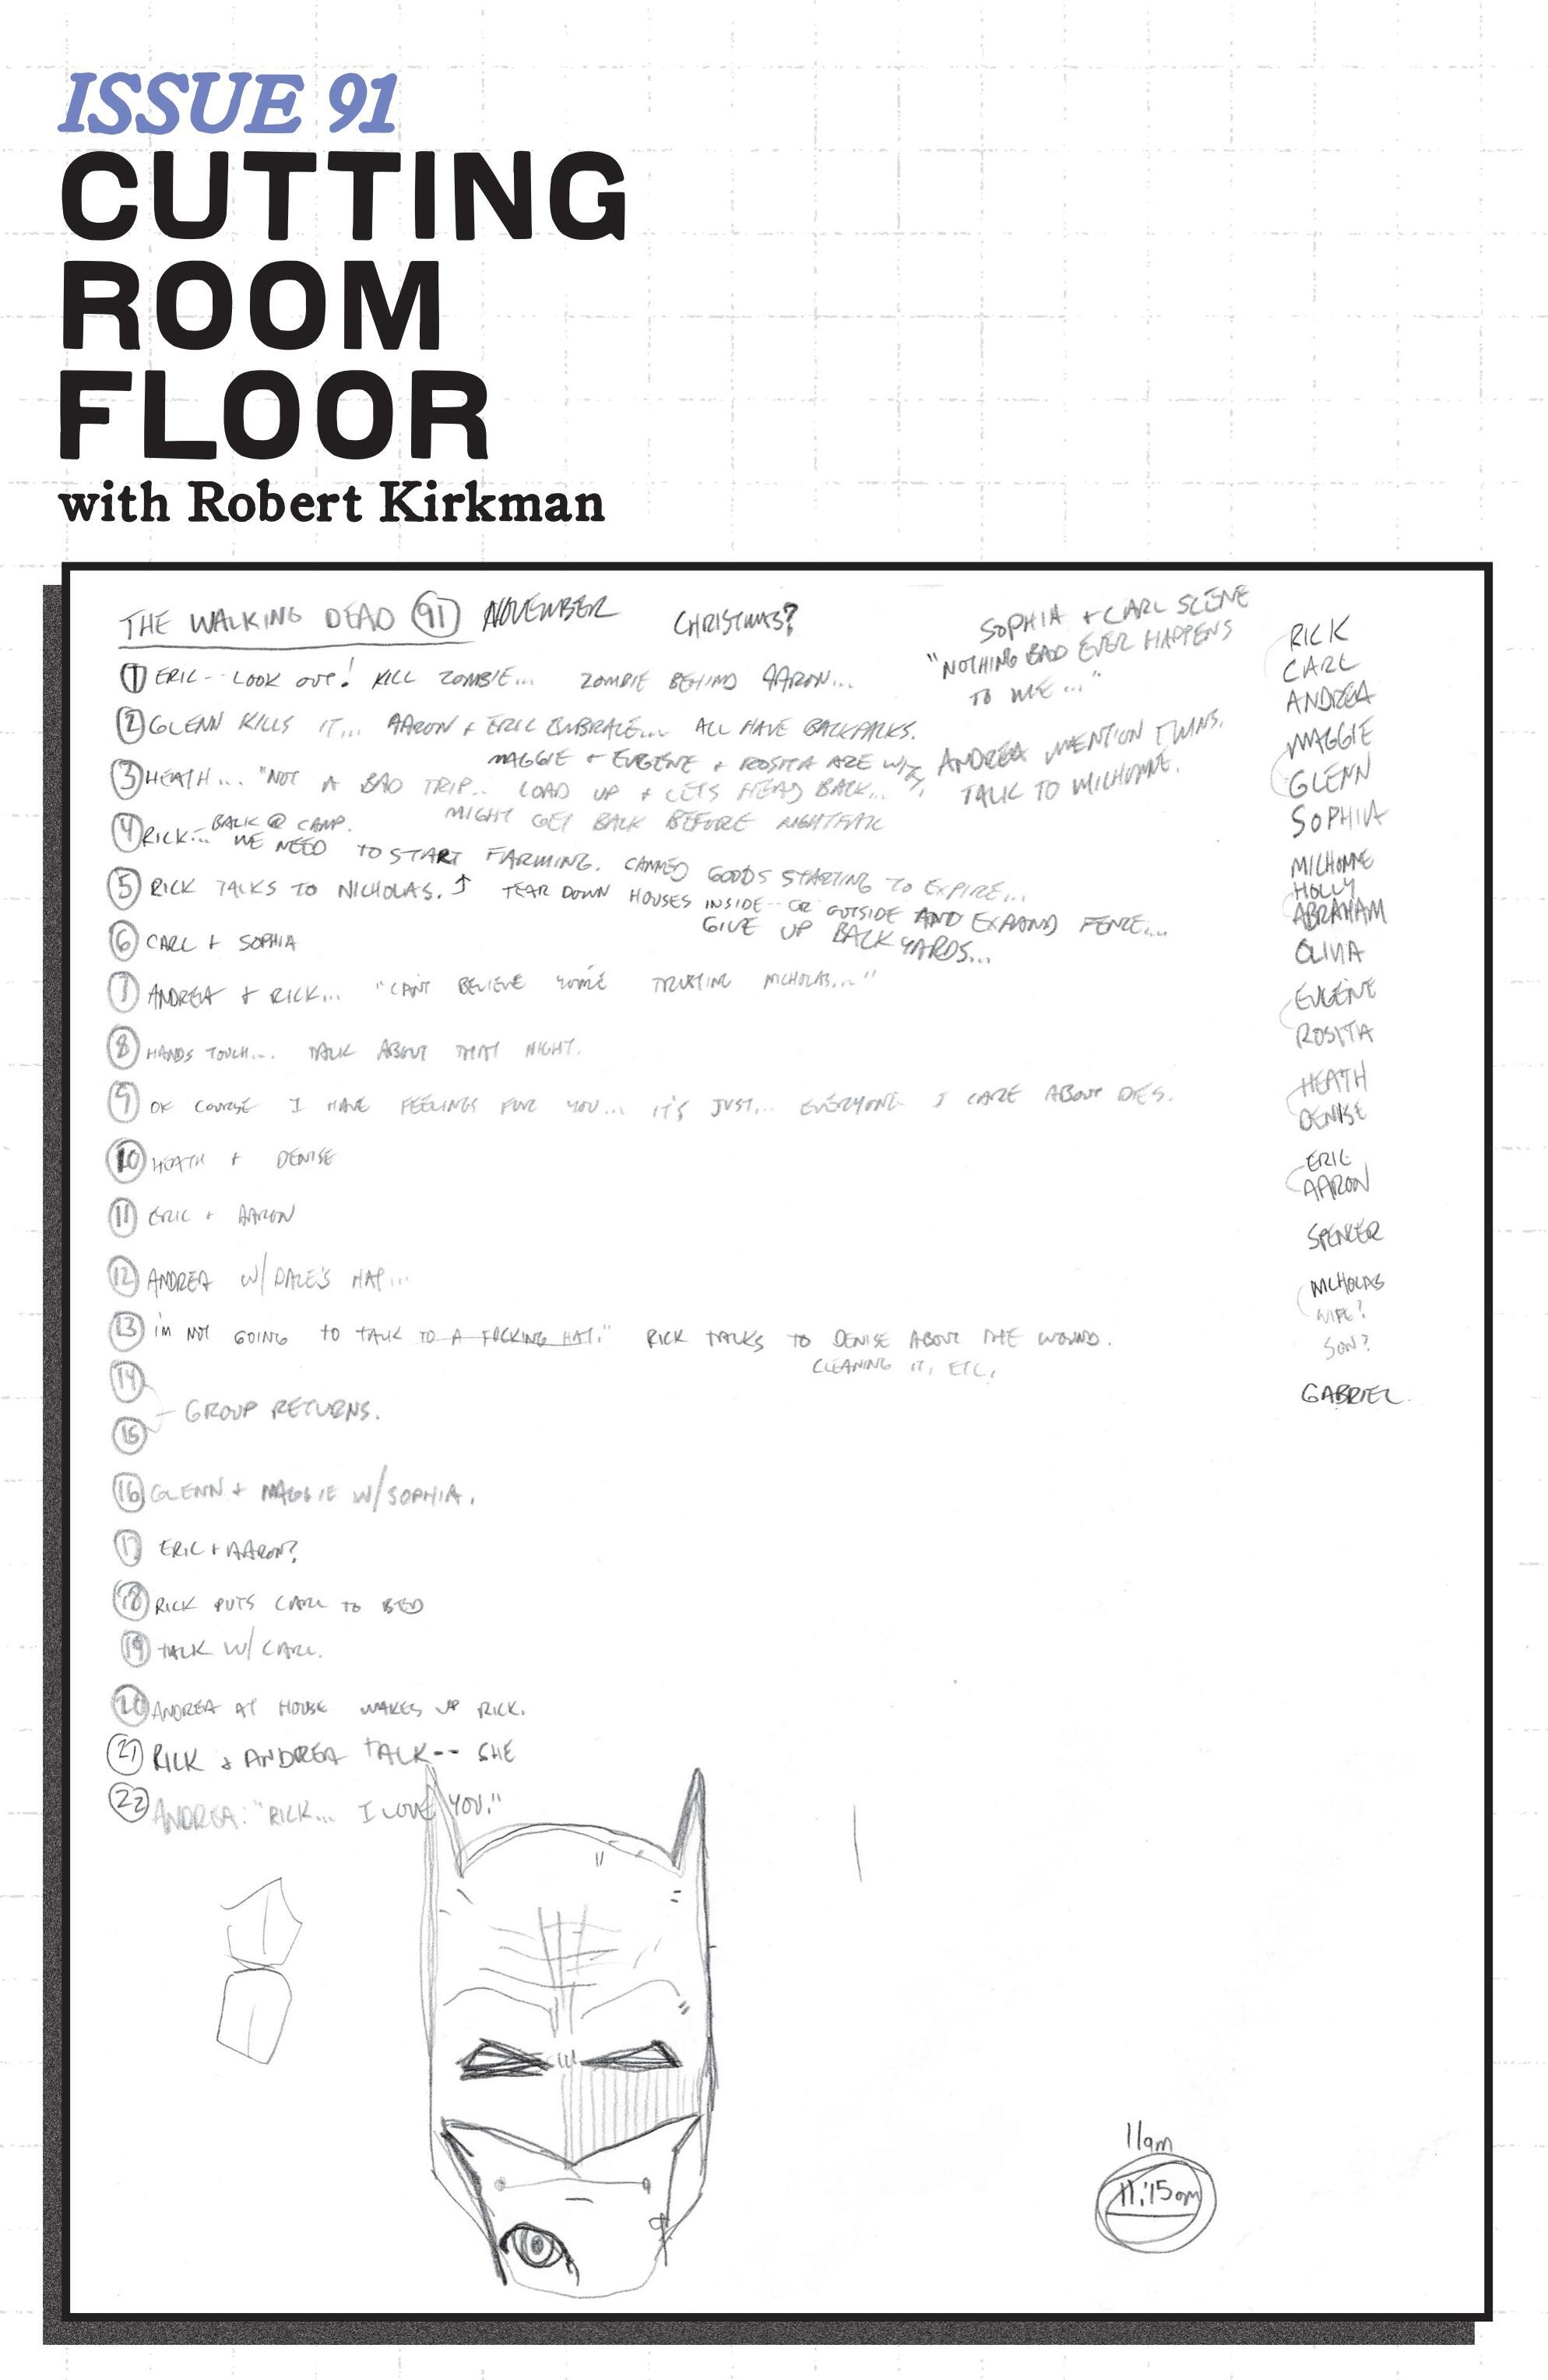 ISSUE 91
CUTTING
ROOM
FLOOR
with Robert Kirkman
THE WALKING DEAD 91 NOVEMBER CHRISTMAS?
SOPHIA + CARL SCENE
"NOTHING BAD EVER HAPPENS
TO ME..."
1 ERIC-- LOOK OUT! KILL ZOMBIE... ZOMBIE BEHIND AARON...
2 GLENN KILLS IT... AARON + ERIC EMBRACE... ALL HAVE BACKPACKS.
MAGGIE + EUGENE + ROSITA ARE W/
ANDREA MENTION TWINS.
TALK TO MICHONNE.
3 HEATH... "NOT A BAD TRIP... LOAD UP + LETS HEAD BACK...
MIGHT GET BACK BEFORE NIGHTFALL
BACK @ CAMP.
4 RICK... WE NEED TO START FARMING. CANNED GOODS STARTING TO EXPIRE...
5 RICK TALKS TO NICHOLAS. ↑ TEAR DOWN HOUSES INSIDE-- OR OUTSIDE AND EXPAND FENCE...
GIVE UP BACK YARDS...
6 CARL + SOPHIA
7 ANDREA + RICK... "CAN'T BELIEVE YOU'RE TRUSTING NICHOLAS..."
8 HANDS TOUCH... TALK ABOUT THAT NIGHT.
9 OF COURSE I HAVE FEELINGS FOR YOU... IT'S JUST... EVERYONE I CARE ABOUT DIES.
10 HEATH + DENISE
11 ERIC + AARON
12 ANDREA W/ DALE'S HAT...
13 I'M NOT GOING TO TALK TO A FUCKING HAT." RICK TALKS TO DENISE ABOUT THE WOUND.
CLEANING IT, ETC.
14
15
GROUP RETURNS.
16 GLENN + MAGGIE W/ SOPHIA.
17 ERIC + AARON?
18 RICK PUTS CARL TO BED
19 TALK W/ CARL.
20 ANDREA AT HOUSE WAKES UP RICK.
21 RICK + ANDREA TALK-- SHE
22 ANDREA: "RICK... I LOVE YOU."
RICK
CARL
ANDREA
MAGGIE
GLENN
SOPHIA
MICHONNE
HOLLY
ABRAHAM
OLIVIA
EUGENE
ROSITA
HEATH
DENISE
ERIC
AARON
SPENCER
NICHOLAS
WIFE?
SON?
GABRIEL
11am
11:15am